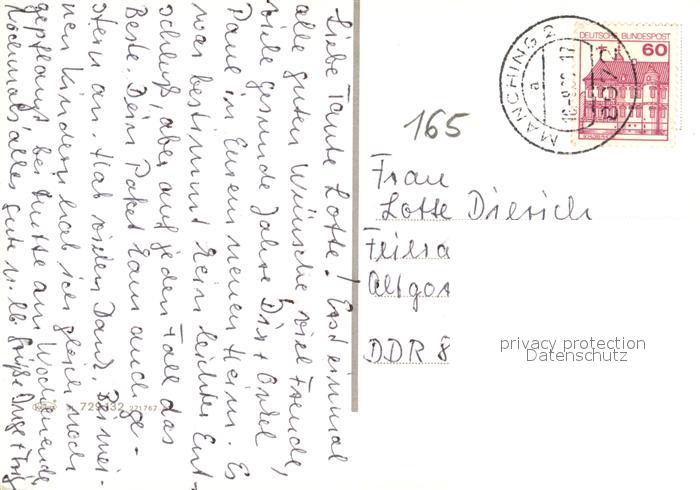 Liebe Tante Lotte! Erst einmal
alle guten Wünsche, viel Freude,
viele gesunde Jahre Dir + Onkel
Paul in Eurem neuen Heim. Es
war bestimmt kein leichter Ent-
schluß, aber auf jeden Fall das
Beste. Dein Paket kam auch ge-
stern an. Hab vielen Dank. Bei mei-
nen Kindern hab ich gleich noch
gepflanzt, bei Mutte am Wochenende
Nochmals alles Gute u. lb. Grüße
729 132 271767
MANCHING 2
a
17
DEUTSCHE BUNDESPOST
60
165
Frau
Lotte Dierich
DDR 8
privacy protection
Datenschutz